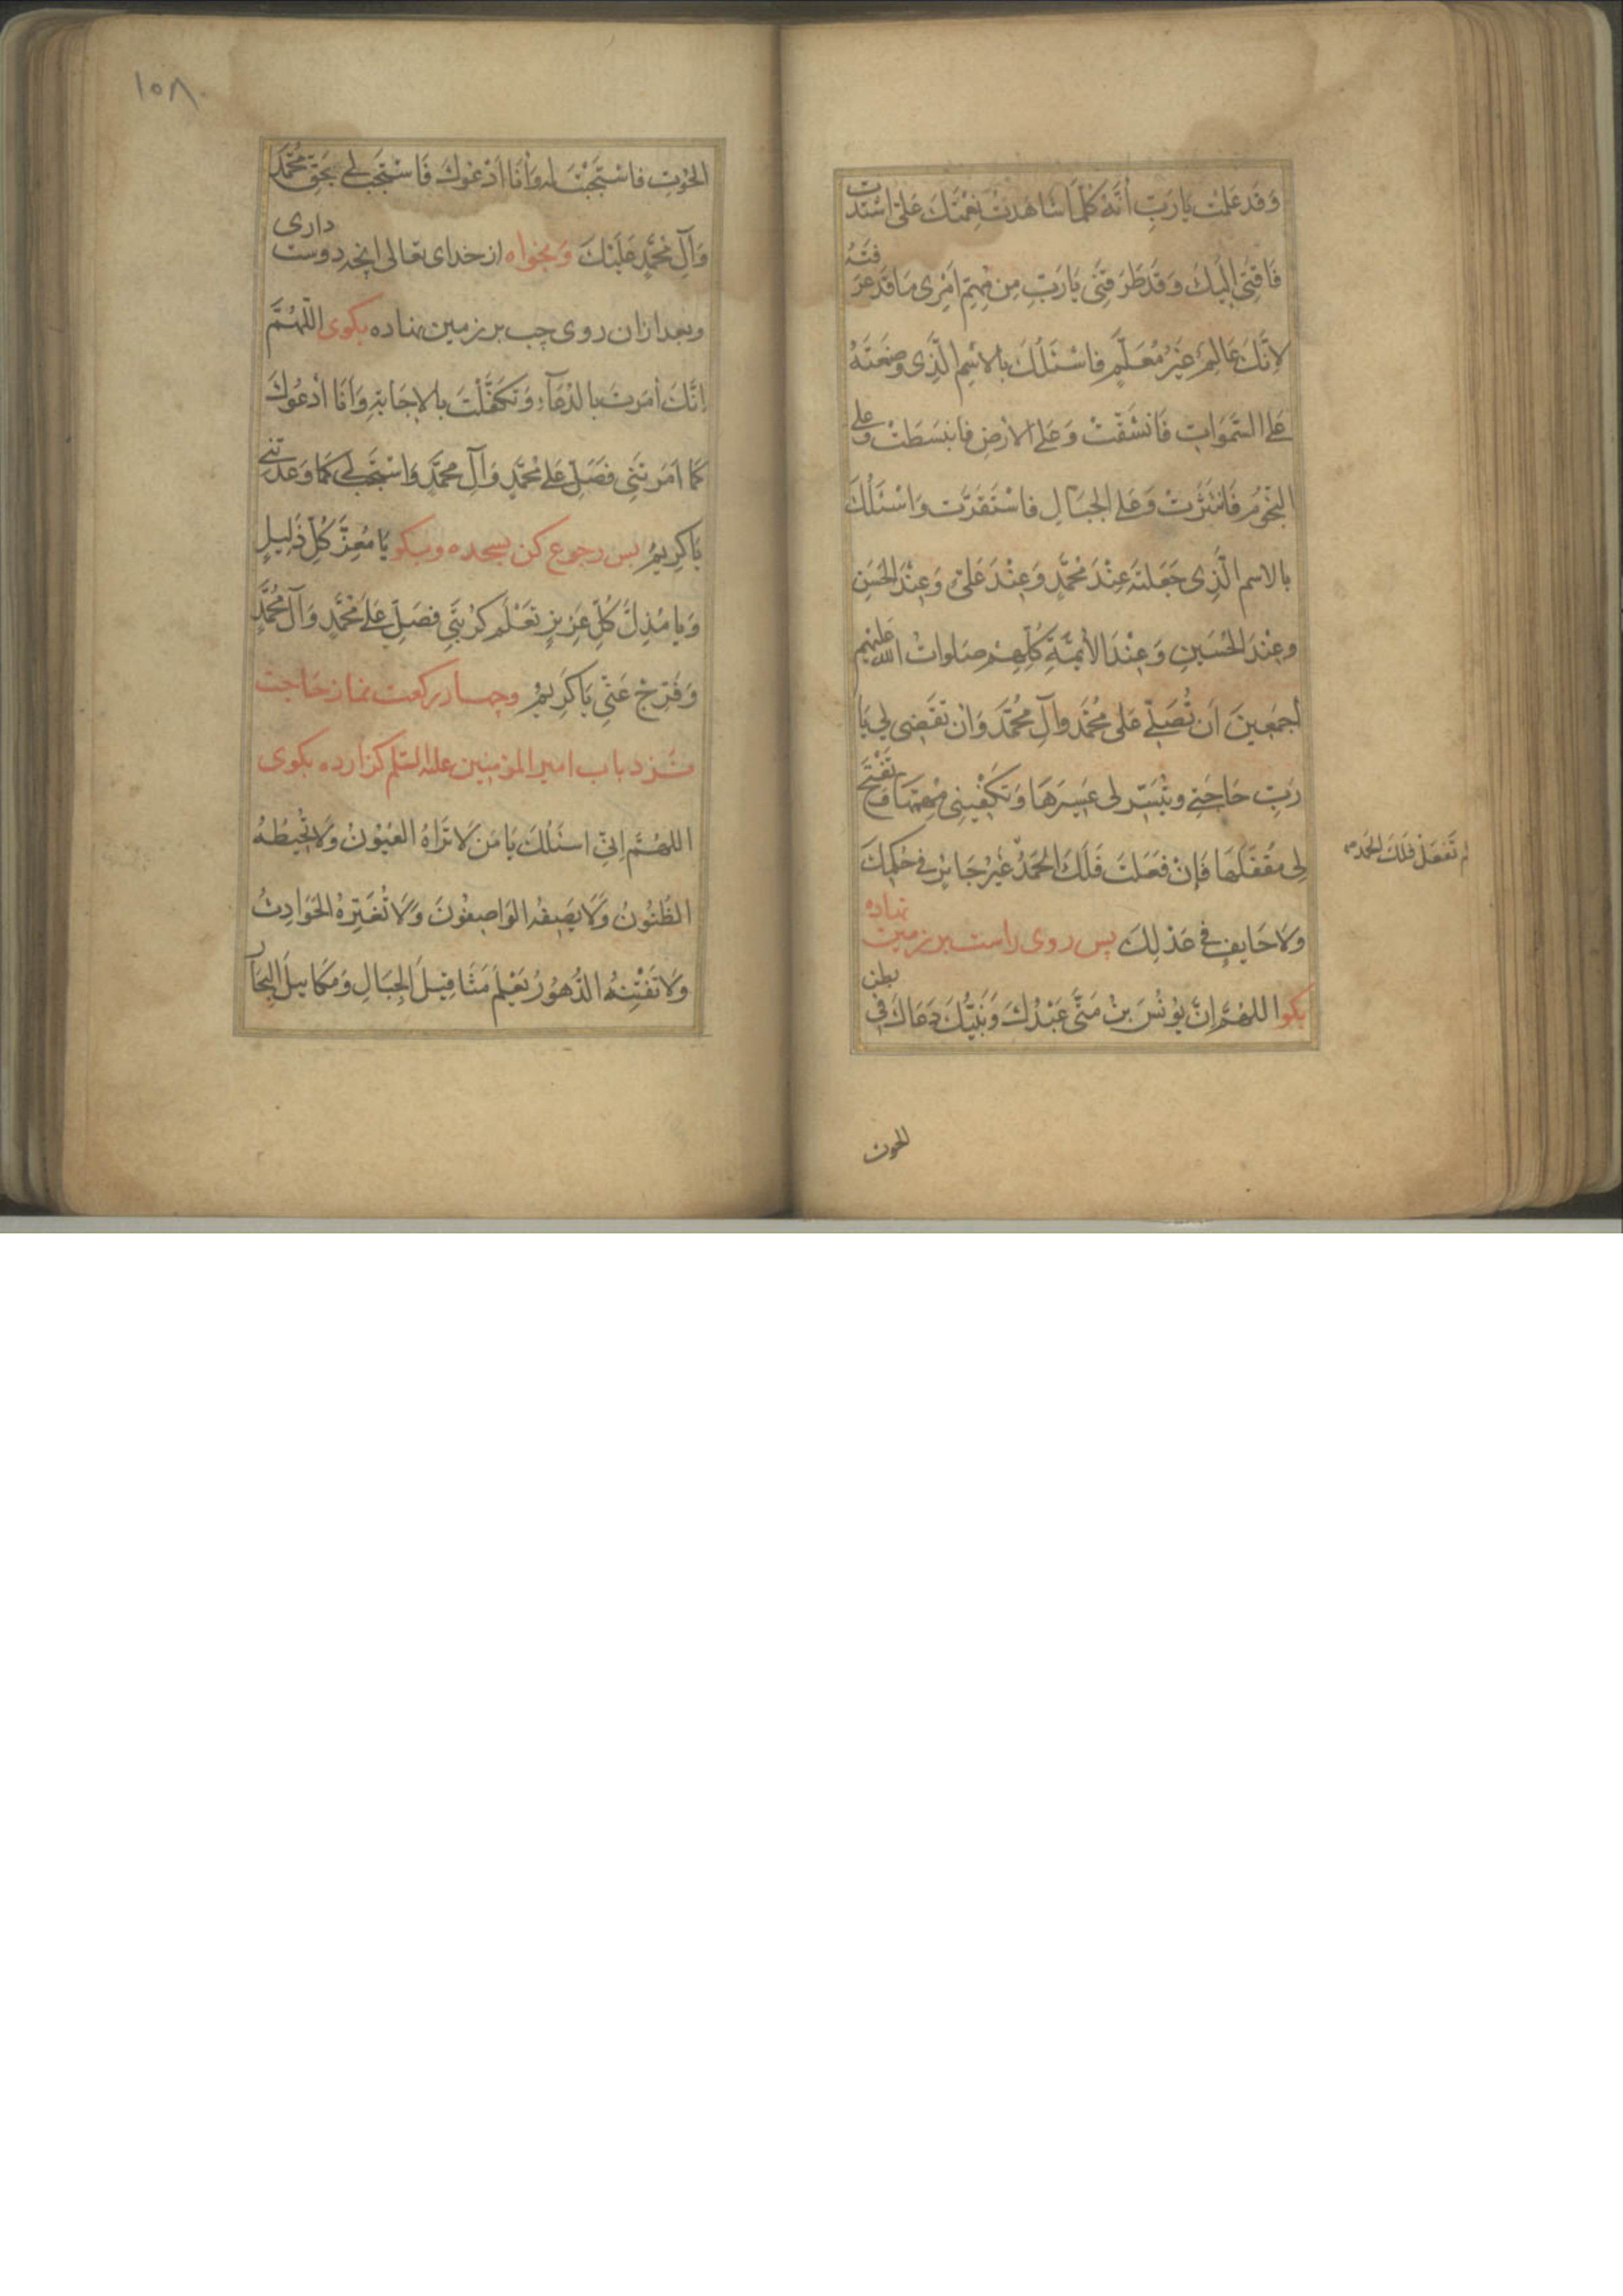 وَقَد عَلِمْتُ يا رَبِّ أَنَّهُ كُلَّمَا شَاهَدْتُ نِعْمَتَكَ عَلَىَّ اشْتَدَّت
فَاقَتِى إِلَيْكَ وَقَدْ طَرَقَنِى يَا رَبِّ مِن مُهِمِّ أَمْرِى مَا قَدْ عَرَفْتَهُ
لِأَنَّكَ عَالِمٌ غَيْرُ مُعَلَّمٍ فاَسْئَلُكَ بِالاِسْمِ الَّذِى وَضَعْتَهُ
عَلَى السَّمَوَاتِ فَانْشَقَّتْ وَعَلَى الأَرْضِ فَانْبَسَطَتْ وَعَلَى
النُّجُومِ فَانْتَثَرَتْ وَعَلَى الجِبَالِ فَاسْتَقَرَّت وَاسْئَلُكَ
بِالاِسم الَّذِى جَعَلتَهُ عِنْدَ مُحَمَّدٍ وَعِنْدَ عَلِىٍّ وَعِنْدَ الحَسَنِ
وعِنْدَ الحُسَيْنِ وَعِنْدَ الأَئِمَّةِ كُلِّهِمْ صَلَواتُ اللّه عَلَيْهِم
أَجمَعِينَ أَن تُصَلِّىَ عَلَى مُحَمَّد وَآلِ مُحَمَّدَ وَأَنْ تَقْضِى لِى يَا
رَبِّ حَاجَتِى وتُيَسِّر لى عَسِيرَهَا وَتَكْفِيَنِى مُهِمَّهَا وَتَفْتَحَ
لِى مُقْفَلَهَا فَإِنْ فَعَلتَ فَلَكَ الحَمْدُ غَيْرُ جَائِرٍ فِى حُكمِكَ
لم تَفعَلْ فَلَكَ الحَمد
وَلَا حَايِفٍ فِى عَدْلِكَ پس روى راست بر زمين نهاده
بكو اللهُمَّ إِنَّ يُونُسَ بنْ مَتَّى عَبْدُكَ وَنَبِيُّكَ دَعَاكَ فِى بطن
الحوت
١٥٨
الحُوتِ فاسْتَجَبْتَ لَه وَأَنَا أَدْعُوكَ فَاسْتَجِب لِى بِحَقِّ مُحَمَّد
وَآلِ مُحَمَّدٍ عَلَيْكَ وَبخواه از خداى تعالى انچه دوست دارى
وبعد ازان روى چپ بر زمين نهاده بكوى اللّهُمَّ
إِنَّكَ أَمَرتَ بِالدُّعَآءِ وَتَكَفَّلْتَ بِالإِجَابَةِ وَأَنَا أَدْعُوكَ
كَمَا اَمَرْتَنِى فَصَلِّ عَلَى مُحَمَّدٍ وَآلِ مُحَمَّدٍ وَاسْتَجِب لِى كَمَا وَعَدْتَنِى
يَا كَرِيمُ پس رجوع كن بسجده وبكو يَا مُعِزَّ كُلِّ ذَلِيلٍ
وَيا مُذِلَّ كُلِّ عَزِيزٍ تَعْلَم كُرْبَتِى فَصَلِّ عَلَى مُحَمَّدٍ وَآلِ مُحَمَّدٍ
وَفَرِّجْ عَنِّى يَا كَرِيمُ وچهار ركعت نماز حاجت
نزد باب امير المؤمنين عليه السّلم كزارده بكوى
اللهُمَّ إِنِّى اسئَلُكَ يَا مَن لَا تَرَاهُ العُيُونُ وَلَا تُحِيطُ بِهُ
الظُّنُونُ وَلَا يَصِفُهُ الوَاصِفُونَ وَلَا تُغَيِّرُهُ الحَوَادِثُ
وَلَا تُفْنِيهُ الدُّهُورُ تَعْلَمُ مَثَاقِيلَ الجِبَالِ وَمَكَايِيلَ البِحَار